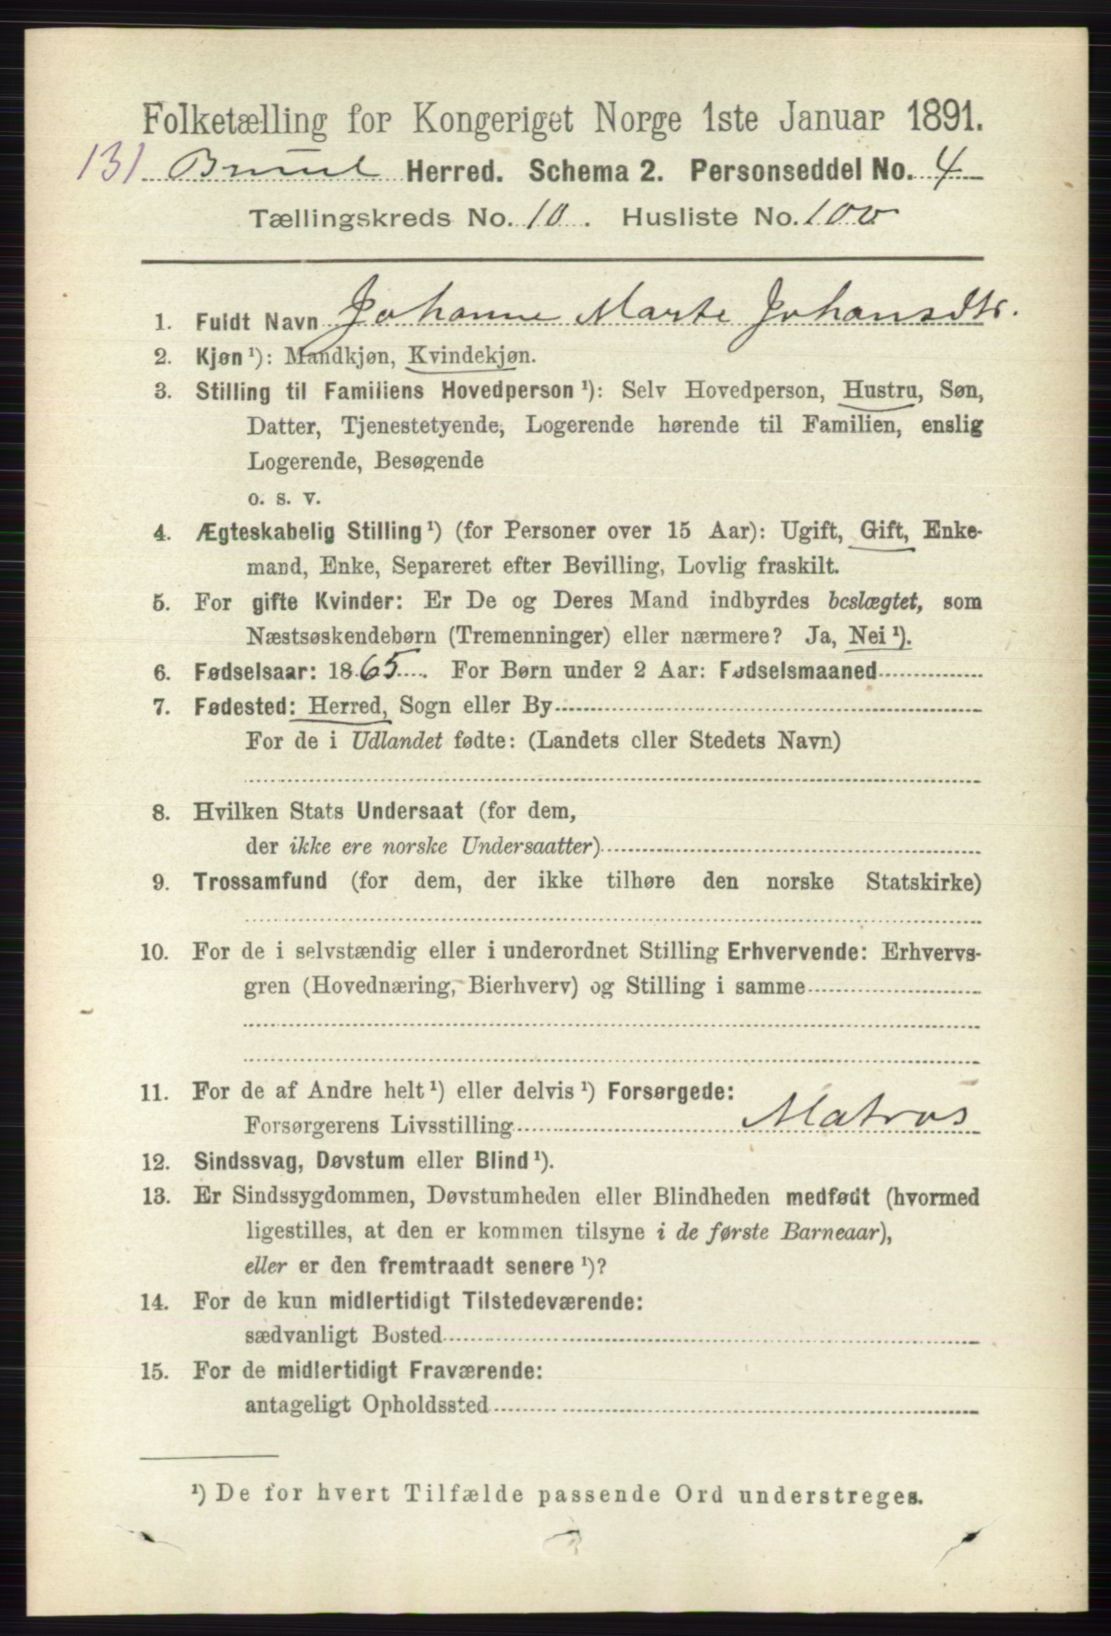 Folketælling for Kongeriget Norge 1ste Januar 1891.
131 Brunl Herred. Schema 2. Personseddel No. 4
Tællingskreds No. 10. Husliste No. 100
1. Fuldt Navn Johanne Marte Johansdtr.
2. Kjøn ¹): Mandkjøn, Kvindekjøn.
3. Stilling til Familiens Hovedperson ¹): Selv Hovedperson, Hustru, Søn,
Datter, Tjenestetyende, Logerende hørende til Familien, enslig
Logerende, Besøgende
o. s. v.
4. Ægteskabelig Stilling ¹) (for Personer over 15 Aar): Ugift, Gift, Enke-
mand, Enke, Separeret efter Bevilling, Lovlig fraskilt.
5. For gifte Kvinder: Er De og Deres Mand indbyrdes beslægtet, som
Næstsøskendebørn (Tremenninger) eller nærmere? Ja, Nei ¹).
6. Fødselsaar: 1865. For Børn under 2 Aar: Fødselsmaaned
7. Fødested: Herred, Sogn eller By
For de i Udlandet fødte: (Landets eller Stedets Navn)
8. Hvilken Stats Undersaat (for dem,
der ikke ere norske Undersaatter)
9. Trossamfund (for dem, der ikke tilhøre den norske Statskirke)
10. For de i selvstændig eller i underordnet Stilling Erhvervende: Erhvervs-
gren (Hovednæring, Bierhverv) og Stilling i samme
11. For de af Andre helt ¹) eller delvis ¹) Forsørgede:
Forsørgerens Livsstilling Matros
12. Sindssvag, Døvstum eller Blind ¹).
13. Er Sindssygdommen, Døvstumheden eller Blindheden medfødt (hvormed
ligestilles, at den er kommen tilsyne i de første Barneaar),
eller er den fremtraadt senere ¹)?
14. For de kun midlertidigt Tilstedeværende:
sædvanligt Bosted
15. For de midlertidigt Fraværende:
antageligt Opholdssted
¹) De for hvert Tilfælde passende Ord understreges.